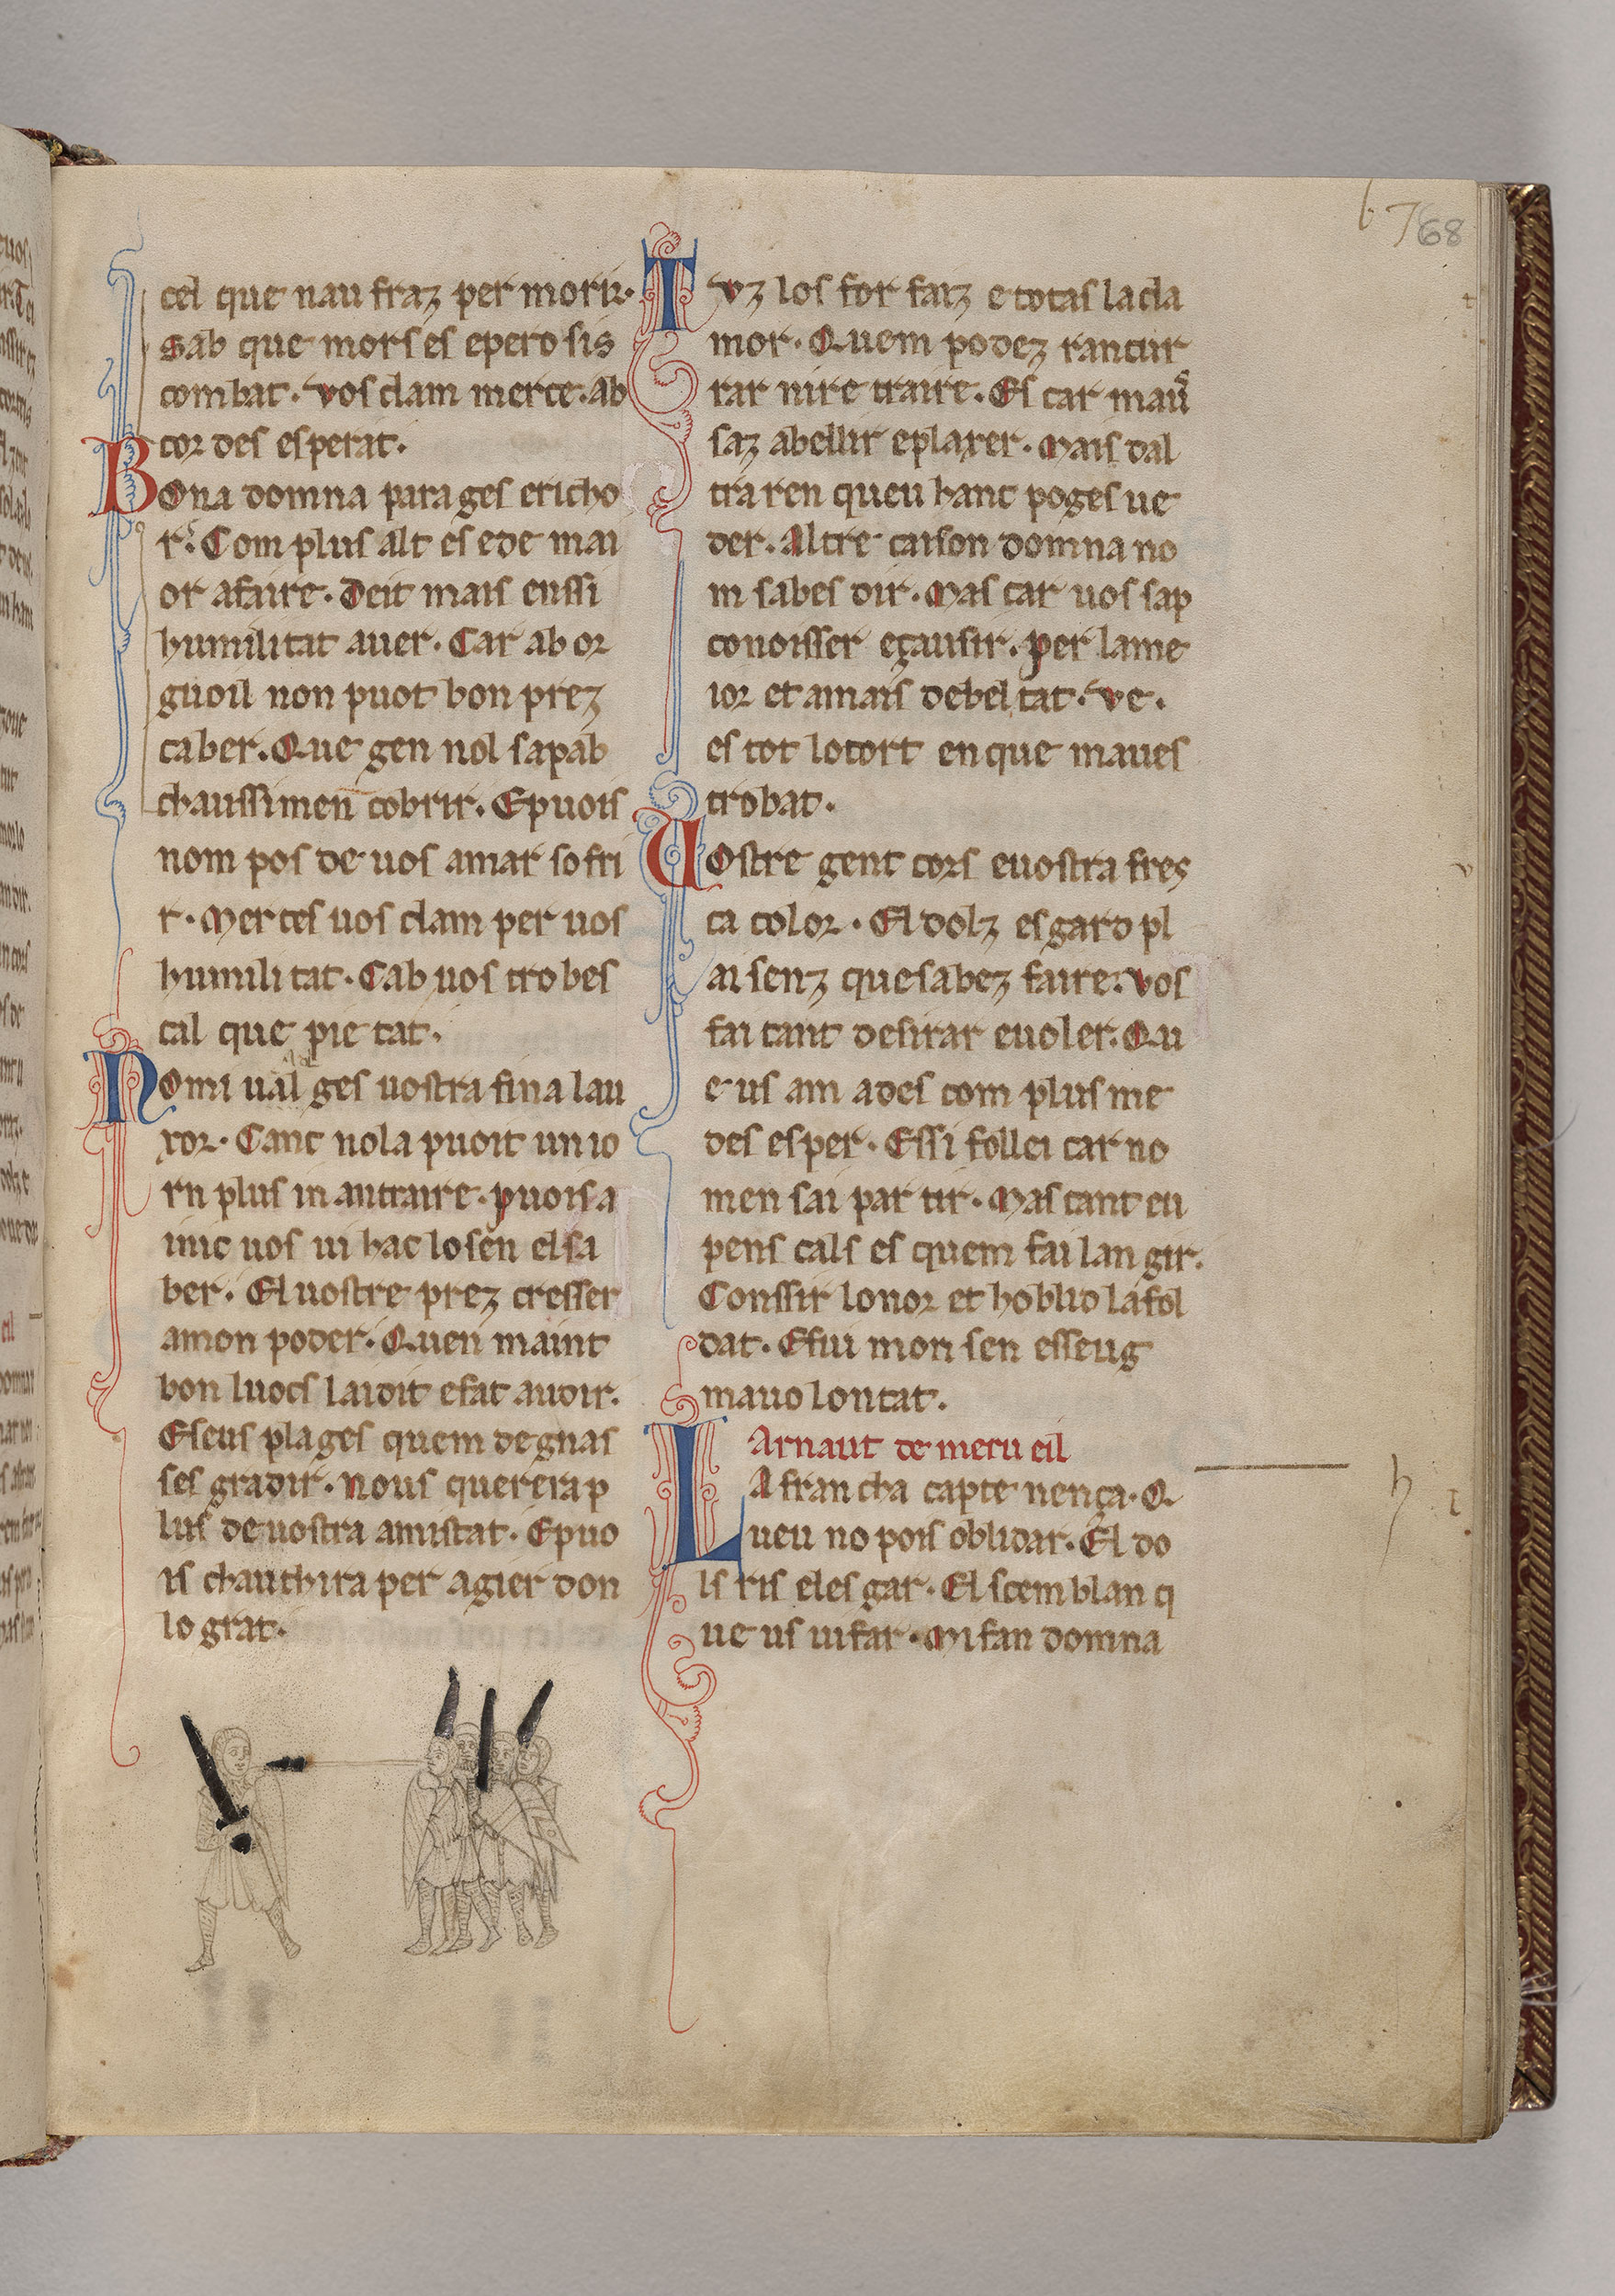 68
cel que nau fraz per morir·
Sab que mors es epero sis
combat· vos clam merce·ab
cor des esperat·
Bona domna parages ericho
r· Com plus alt es ede mai
or afaire· Deit mais eussi
humilitat auer· Car ab or
guoil non puot bon prez
caber· Que gen nol sapab
chaussimen cobrir· Epuois
nom pos de uos amar sofri
r· Merces uos clam per uos
humilitat· Cab uos trobes
tal que pietat·
Nomi ual ges uostra fina lau
zor· Canc nola puoit un io
rn plus in antraire· puois a
inic uos ui hac losen elsa
ber· El uostre prez cresser
amon poder· Quen maint
bon luocs laidit efat auoir·
Eseus plages quem degnas
ses gradir· Nous quererap
lus de uostra amistat· Epuo
is chauthira per agier don
lo grat·
Tuz los for faiz e totas la cla
mor· Quem podez rancur
rar nire traire· Es car mau
saz abellir eplazer· Mais dal
tra ren queu hanc poges ue
der· Altre caison domna no
m sabes dir· Mas car uos sap
conoisser eçausir· per la me
ior et amais debeltat· ve·
es tot lo tort en que maues
trobat·
Uostre gent cors euostra fres
ca color· El dolz esgard pl
aisenz que sabez faire· vos
fai tant desirar euoler· Qu
e us am ades com plus me
des esper· Essi follei car no
men sai partir· Mas cant eu
pens cals es quem fai langir·
Conssir lonor et hoblid lafol
dat· Efui mon sen esseug
mauolontat·
Arnaut de meru eil
LA francha captenença· Q
ueu no pois oblidar· El do
ls ris eles gar· El scemblan q
ue us uifar· Mi fan domna